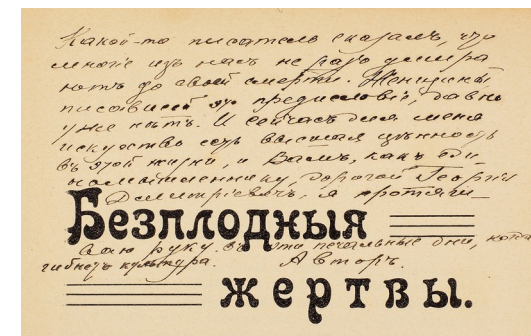 Какой-то писатель сказалъ, что
многіе изъ насъ не разъ умира
ютъ до своей смерти. Женщины,
писавшей это предисловіе, давно
уже нѣтъ. И сейчасъ для меня
искусство есть высшая цѣнность
въ этой жизни, и Вамъ, какъ еди-
номышленнику, дорогой Георгій
Димитріевичъ, я протяги-
Безплодныя
ваю руку въ эти печальные дни, когда
гибнетъ культура. Авторъ.
жертвы.